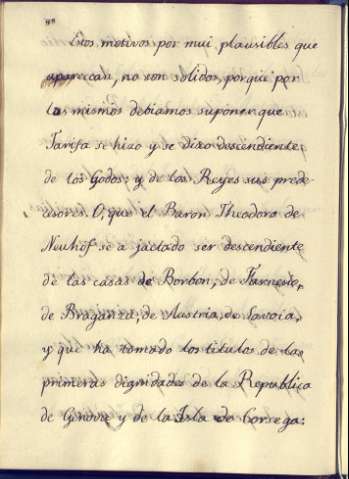 Estos motivos por mui plausibles que
aparezcan, no son solidos, porque por
los mismos debiamos suponer que
Tarifa se hizo y se dixo descendiente
de los Godos; y de los Reyes sus prede
cesores. O, que el Baron Theodoro de
Neuhóf se á jactado ser descendiente
de las casas de Borbon, de Farnesio,
de Braganza, de Austria, de Savoia,
y que ha tomado los titulos de las
primeras dignidades de la Republica
de Genova y de la Isla de Corsega: